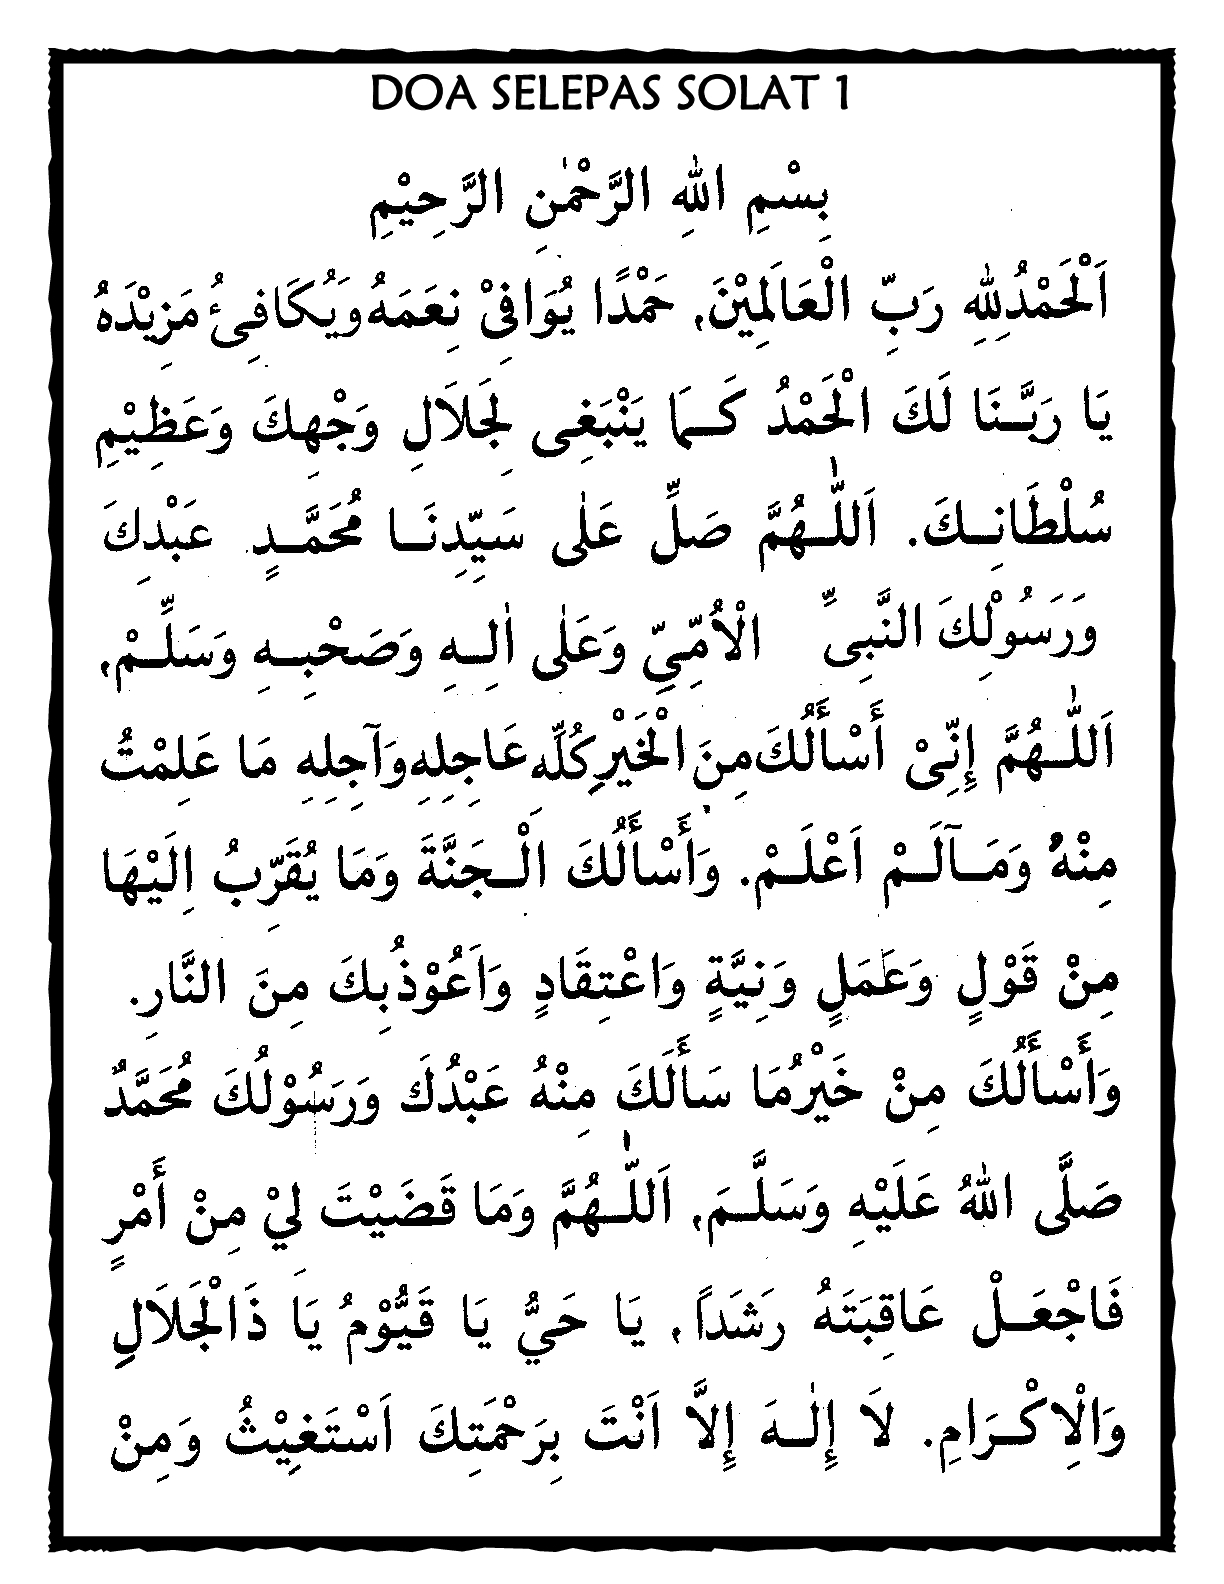 DOA SELEPAS SOLAT 1
بِسْمِ اللهِ الرَّحْمٰنِ الرَّحِيْمِ
اَلْحَمْدُلِلّٰهِ رَبِّ الْعَالَمِيْنَ, حَمْدًا يُوَافِىْ نِعَمَهُ وَيُكَافِئُ مَزِيْدَهُ
يَا رَبَّـنَا لَكَ الْحَمْدُ كَـمَا يَنْبَغِى لِجَلاَلِ وَجْهِكَ وَعَظِيْمِ
سُلْطَانِـكَ. اَللّٰـهُمَّ صَلِّ عَلٰى سَيِّدِنَـا مُحَمَّـدٍ عَبْدِكَ
وَرَسُوْلِكَ النَّبِىِّ الْاُمِّىِّ وَعَلٰى اٰلِـهِ وَصَحْبِـهِ وَسَلِّـمْ,
اَللّٰـهُمَّ إِنِّىْ أَسْأَلُكَ مِنَ الْخَيْرِ كُلِّهِ عَاجِلِهِ وَآجِلِهِ مَا عَلِمْتُ
مِنْهُ وَمَـآلَـمْ اَعْلَـمْ. وَأَسْأَلُكَ الْـجَنَّةَ وَمَا يُقَرِّبُ اِلَيْهَا
مِنْ قَوْلٍ وَعَمَلٍ وَنِيَّةٍ وَاعْتِقَادٍ وَاَعُوْذُبِكَ مِنَ النَّارِ.
وَأَسْأَلُكَ مِنْ خَيْرِمَا سَأَلَكَ مِنْهُ عَبْدُكَ وَرَسُوْلُكَ مُحَمَّدٌ
صَلَّى اللهُ عَلَيْهِ وَسَلَّـمَ, اَللّٰـهُمَّ وَمَا قَضَيْتَ لِيْ مِنْ أَمْرٍ
فَاجْعَـلْ عَاقِبَتَهُ رَشَداً, يَا حَيُّ يَا قَيُّوْمُ يَا ذَالْجَلاَلِ
وَالْاِكْـرَامِ. لاَ إِلٰـهَ إِلاَّ اَنْتَ بِرَحْمَتِكَ اَسْتَغِيْثُ وَمِنْ